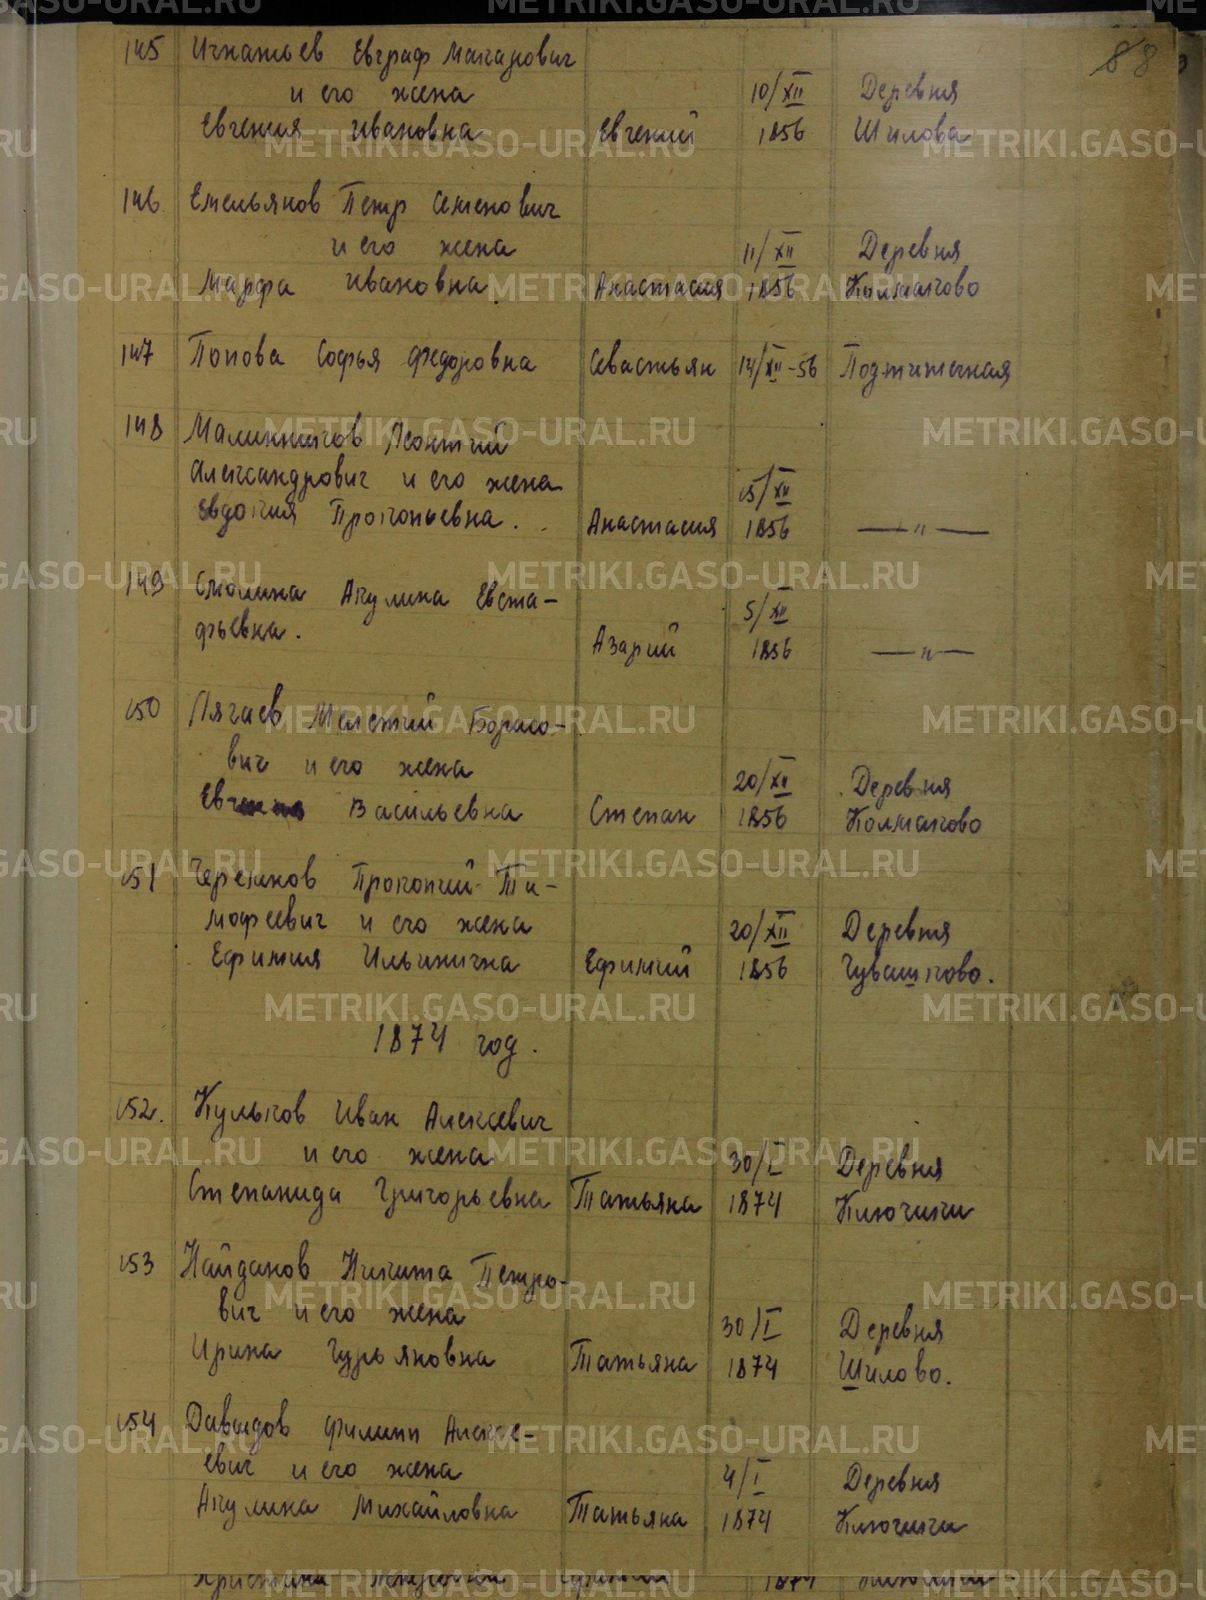 88
145 Игнатьев Евграф Макарович
и его жена 10/XII Деревня
Евгения Ивановна Евгений 1856 Шилова
146 Емельянов Петр Семенович
и его жена 11/XII Деревня
Марфа Ивановна Анастасия 1856 Колмаково
147 Попова Софья Федоровна Севастьян 14/XII-56
148 Малинников Леонтий
Александрович и его жена 15/XII
Евдокия Прокопьевна. Анастасия 1856 —"—
149 Смолина Акулина Евста-
фьевна. 5/XII
Азарий 1856 —"—
150 Лягаев Мелетий Борисо-
вич и его жена 20/XII Деревня
Васильевна Степан 1856 Колмаково
151 Черепнов Прокопий Ти-
мофеевич и его жена 20/XII Деревня
Ефимия Ильинична Ефимий 1856 Чувашково.
1874 год.
152. Кульков Иван Алексеевич
и его жена 30/I Деревня
Степанида Григорьевна Татьяна 1874 Ключики
153 Найданов Никита Петро-
вич и его жена 30/I Деревня
Ирина Гурьяновна Татьяна 1874 Шилово.
154 Давыдов Филипп Алексе-
евич и его жена 4/I Деревня
Акулина Михайловна Татьяна 1874 Ключики
1874
METRIKI.GASO-URAL.RU